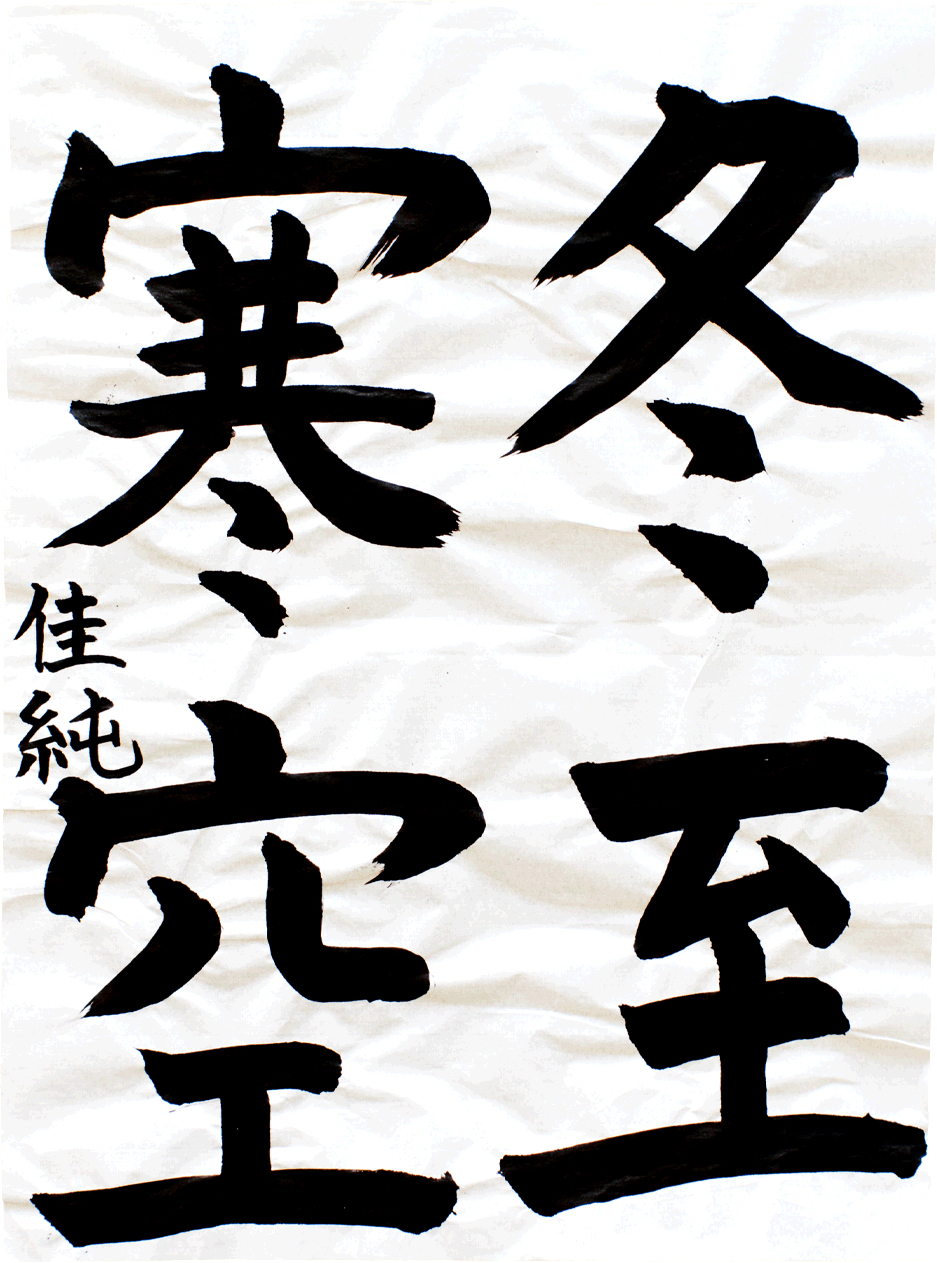 冬至
寒空
佳純